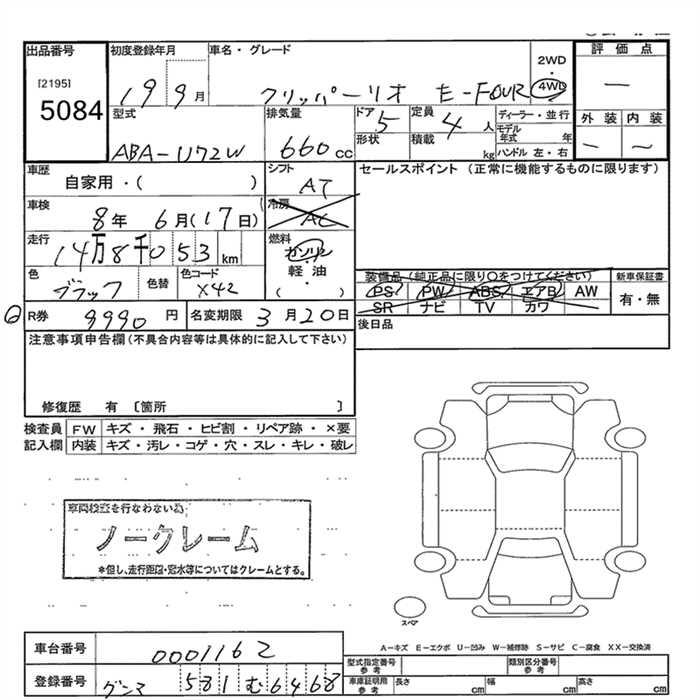 出品番号
[2195]
5084
初度登録年月
19 9月
車名・グレード
クリッパーリオ E-FOUR
2WD
・
4WD
評価点
―
外装 内装
― ―
型式
ABA-U72W
排気量
660cc
ドア
5
形状
定員
4人
積載
kg
ディーラー・並行
モデル年式 年
ハンドル 左・右
車歴
自家用・( )
シフト
AT
セールスポイント (正常に機能するものに限ります)
車検
8年 6月(17日)
冷房
AC
走行
14万8千053km
燃料
ガソリン
・
軽油
( )
色
ブラック
色替
色コード
X42
装備品(純正品に限り○をつけてください)
PS PW ABS エアB AW
SR ナビ TV カワ
新車保証書
有・無
R券
9990円
名変期限
3月20日
後日品
注意事項申告欄(不具合内容等は具体的に記入して下さい)
修復歴 有〔箇所 〕
検査員記入欄
FW キズ・飛石・ヒビ割・リペア跡・×要
内装 キズ・汚レ・コゲ・穴・スレ・キレ・破レ
車両検査を行なわない為
ノークレーム
*但し、走行距離・冠水等についてはクレームとする。
スペア
A-キズ E-エクボ U-凹み W-補修跡 S-サビ C-腐食 XX-交換済
車台番号
0001162
登録番号
グンマ 581 む6468
型式指定番号
参考
類別区分番号
参考
車庫証明用
参考
長さ cm
幅 cm
高さ cm